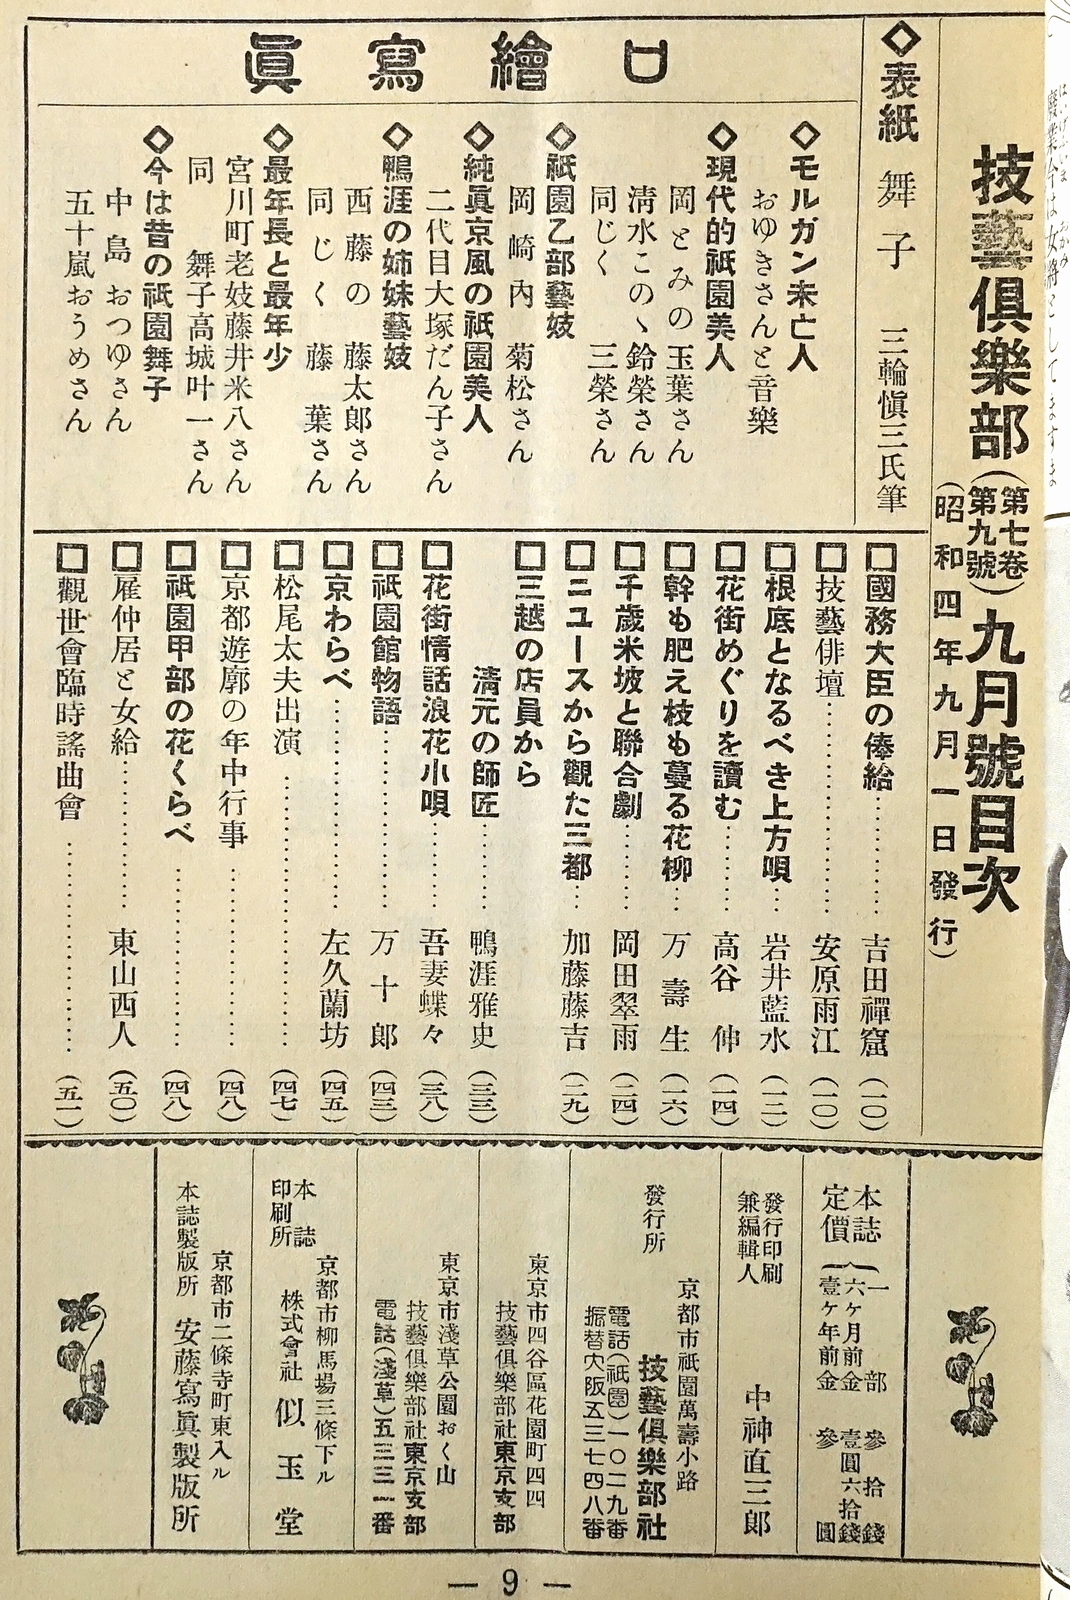 技藝俱樂部(第七卷第九號)九月號目次
(昭和四年九月一日發行)
◇表紙 舞子 三輪愼三氏筆
口繪寫眞
◇モルガン未亡人
おゆきさんと音樂
◇現代的祇園美人
岡とみの玉葉さん
淸水この丶鈴榮さん
同じく 三榮さん
◇祇園乙部藝妓
岡崎内 菊松さん
◇純眞京風の祇園美人
二代目大塚だん子さん
◇鴨涯の姉妹藝妓
西藤の 藤太郎さん
同じく 藤葉さん
◇最年長と最年少
宮川町老妓藤井米八さん
同 舞子高城叶一さん
◇今は昔の祇園舞子
中島おつゆさん
五十嵐おうめさん
□國務大臣の俸給……吉田禪窟(一〇)
□技藝俳壇……安原雨江(一〇)
□根底となるべき上方唄……岩井藍水(一二)
□花街めぐりを讀む……高谷伸(一四)
□幹も肥え枝も蔓る花柳……万壽生(一六)
□千歲米坡と聯合劇……岡田翠雨(二四)
□ニュースから觀た三都……加藤藤吉(二九)
□三越の店員から
淸元の師匠……鴨涯雅史(三三)
□花街情話浪花小唄……吾妻蝶々(三八)
□祇園館物語……万十郎(四三)
□京わらべ……左久蘭坊(四五)
□松尾太夫出演……(四七)
□京都遊廓の年中行事……(四八)
□祇園甲部の花くらべ……(四八)
□雇仲居と女給……東山西人(五〇)
□觀世會臨時謠曲會……(五一)
本誌定價
一部 參拾錢
六ケ月前金 壹圓六拾錢
壹ケ年前金 參圓
發行印刷兼編輯人 中神直三郎
發行所
京都市祇園萬壽小路
技藝俱樂部社
電話(祇園)一〇二九番
振替大阪五三七四八番
東京市四谷區花園町四四
技藝俱樂部社東京支部
東京市淺草公園おく山
技藝俱樂部社東京支部
電話(淺草)五三三一番
本誌印刷所
京都市柳馬場三條下ル
株式會社 似玉堂
京都市二條寺町東入ル
本誌製版所 安藤寫眞製版所
— 9 —